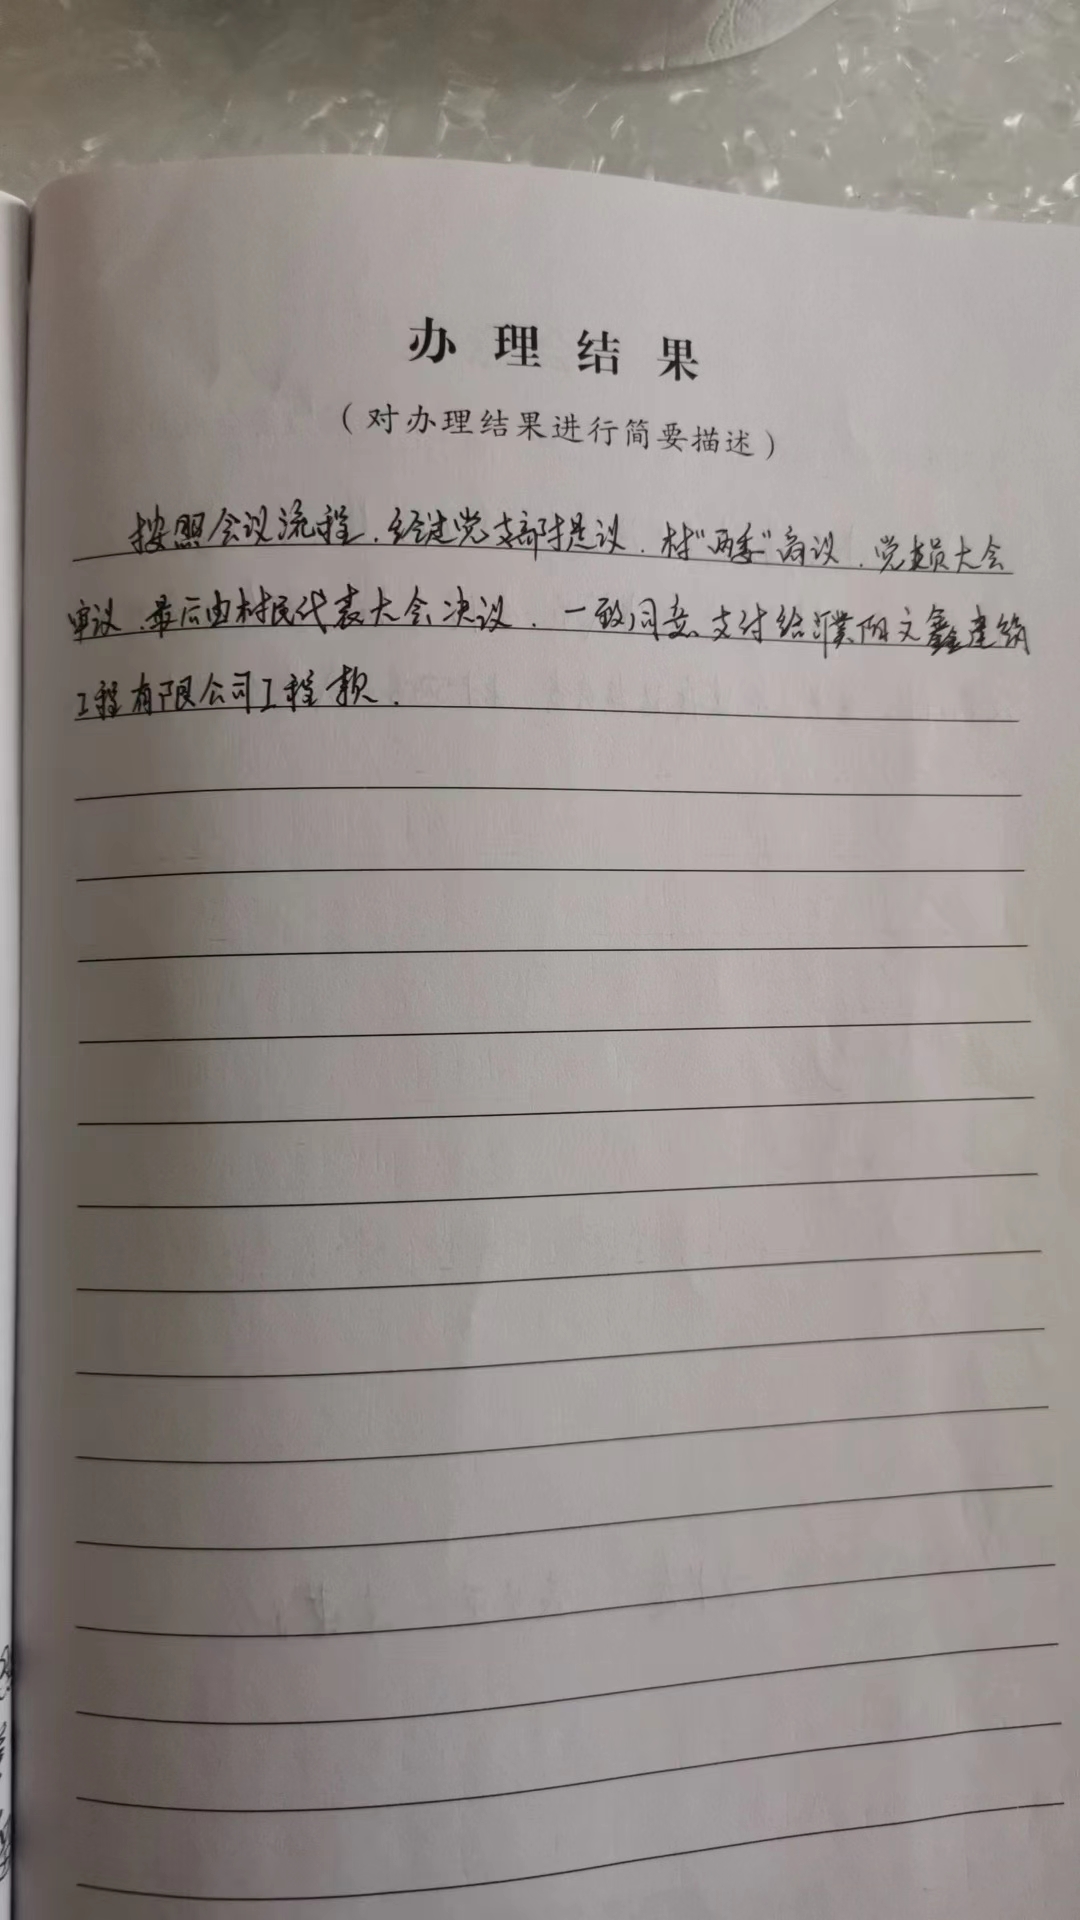 办理结果
（对办理结果进行简要描述）
按照会议流程、经过党支部提议、村“两委”商议、党员大会
审议、最后由村民代表大会决议、一致同意支付给濮阳文鑫建筑
工程有限公司工程款.